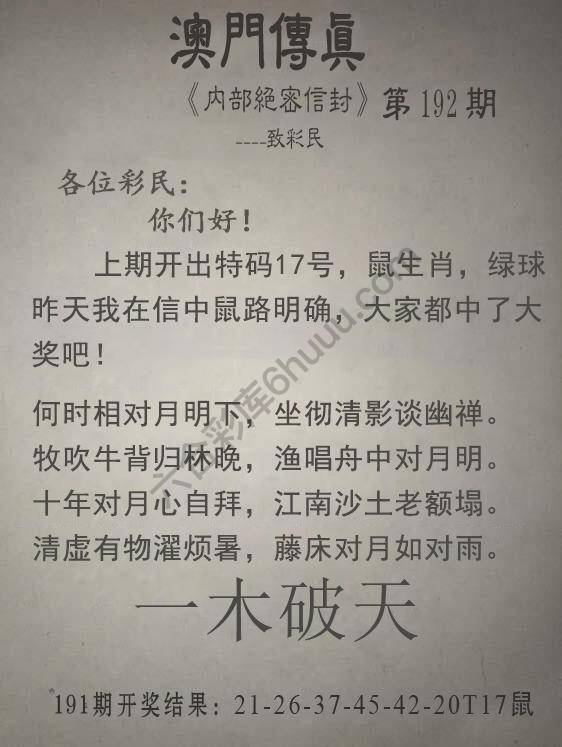 澳門傳眞
《内部絕密信封》第192期
----致彩民
各位彩民：
你们好！
上期开出特码17号，鼠生肖，绿球
昨天我在信中鼠路明确，大家都中了大
奖吧！
何时相对月明下，坐彻清影谈幽禅。
牧吹牛背归林晚，渔唱舟中对月明。
十年对月心自拜，江南沙土老额塌。
清虚有物濯烦暑，藤床对月如对雨。
一木破天
191期开奖结果：21-26-37-45-42-20T17鼠
六合彩库6huuu.com